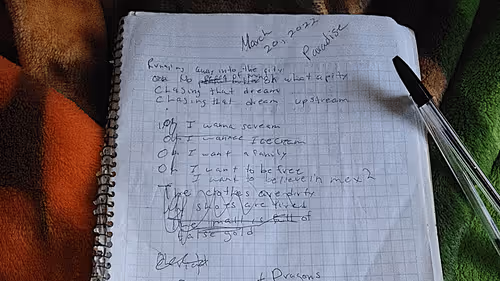 March
20, 2022
Paradise
Running away into the city
No oh what a pity
Chasing that dream
Chasing that dream upstream
Oh I wanna scream
Oh I wannee Icecream
Oh I want a family
Oh I want to be free
I want to believe in mex?
The clothes are dirty
My shoes are tired
The mall is full of
false gold
of Dragons